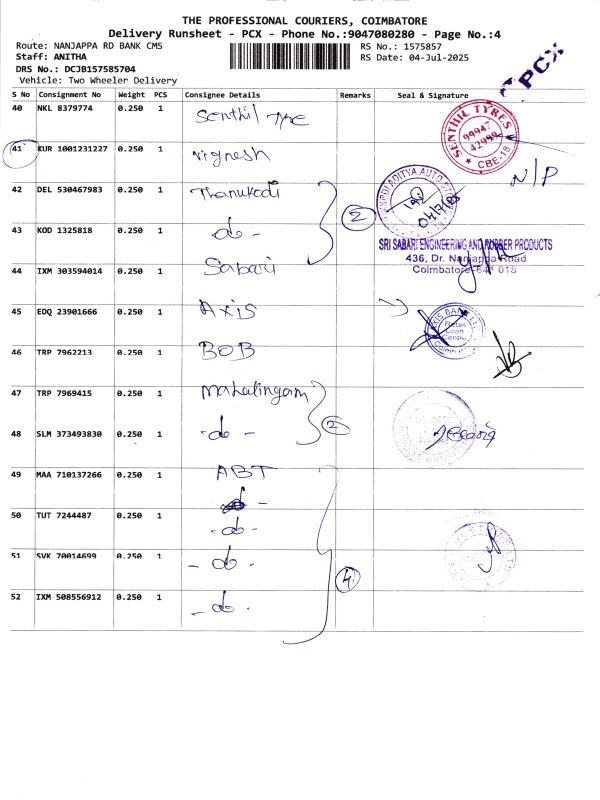 THE PROFESSIONAL COURIERS, COIMBATORE
Delivery Runsheet - PCX - Phone No.:9047080280 - Page No.:4
Route: NANJAPPA RD BANK CMS
Staff: ANITHA
DRS No.: DCJB157585704
Vehicle: Two Wheeler Delivery
RS No.: 1575857
RS Date: 04-Jul-2025
PCX
S No Consignment No Weight PCS Consignee Details Remarks Seal & Signature
40 NKL 8379774 0.250 1 Senthil Tyre
SENTHIL TYRES
99947
42999
CBE-18
41 KUR 1001231227 0.250 1 Vignesh N/P
42 DEL 530467983 0.250 1 Thanukodi 2
ADITYA AUTO
04/7/25
43 KOD 1325818 0.250 1 -do-
SRI SABARI ENGINEERING AND RUBBER PRODUCTS
436, Dr. Nanjappa Road
Coimbatore-641 018
44 IXM 303594014 0.250 1 Sabari
45 EDQ 23901666 0.250 1 Axis
AXIS BANK
Retail
Loan
Centre
46 TRP 7962213 0.250 1 BOB
47 TRP 7969415 0.250 1 Mahalingam 2
48 SLM 373493830 0.250 1 -do-
49 MAA 710137266 0.250 1 ABT
50 TUT 7244487 0.250 1 -do-
51 SVK 70014699 0.250 1 -do- 4
52 IXM 508556912 0.250 1 -do-